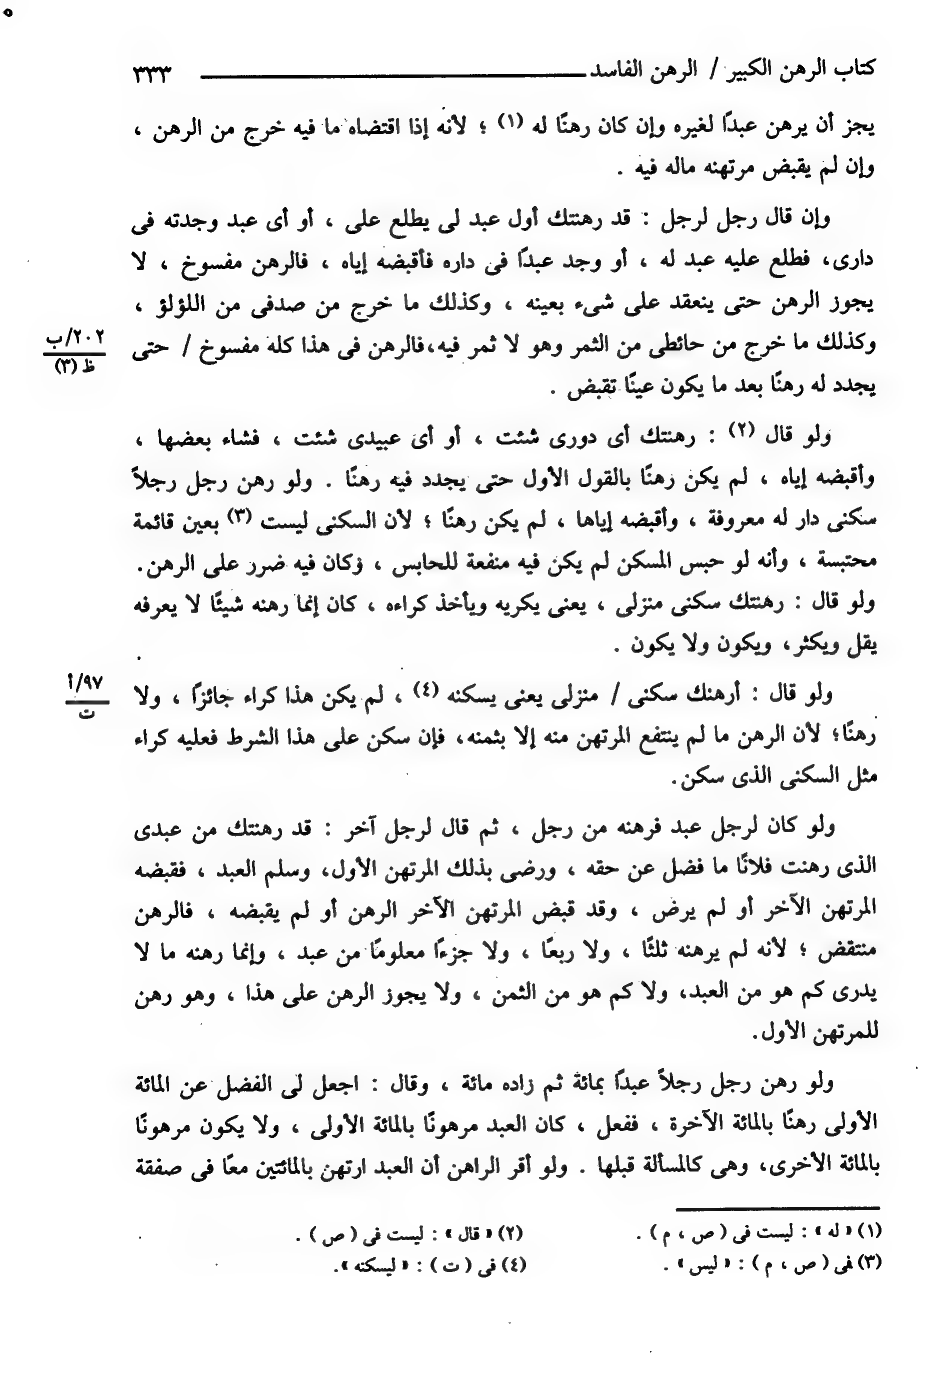 كتاب الرهن الكبير / الرهن الفاسد ٣٣٣
يجز أن يرهن عبدًا لغيره وإن كان رهنًا له (١) ؛ لأنه إذا اقتضاه ما فيه خرج من الرهن ،
وإن لم يقبض مرتهنه ماله فيه .
وإن قال رجل لرجل : قد رهنتك أول عبد لى يطلع على ، أو أى عبد وجدته فى
دارى، فطلع عليه عبد له ، أو وجد عبدًا فى داره فأقبضه إياه ، فالرهن مفسوخ ، لا
يجوز الرهن حتى ينعقد على شىء بعينه ، وكذلك ما خرج من صدفى من اللؤلؤ ،
وكذلك ما خرج من حائطى من الثمر وهو لا ثمر فيه،فالرهن فى هذا كله مفسوخ / حتى
٢٠٢/ب
ظ (٣)
يجدد له رهنًا بعد ما يكون عينًا تقبض .
ولو قال (٢) : رهنتك أى دورى شئت ، أو أى عبيدى شئت ، فشاء بعضها ،
وأقبضه إياه ، لم يكن رهنًا بالقول الأول حتى يجدد فيه رهنًا . ولو رهن رجل رجلاً
سكنى دار له معروفة ، وأقبضه إياها ، لم يكن رهنًا ؛ لأن السكنى ليست (٣) بعين قائمة
محتبسة ، وأنه لو حبس المسكن لم يكن فيه منفعة للحابس ، وكان فيه ضرر على الرهن.
ولو قال : رهنتك سكنى منزلى ، يعنى يكريه ويأخذ كراءه ، كان إنما رهنه شيئًا لا يعرفه
يقل ويكثر، ويكون ولا يكون .
ولو قال : أرهنك سكنى / منزلى يعنى يسكنه (٤) ، لم يكن هذا كراء جائزًا ، ولا
٩٧/أ
ت
رهنًا؛ لأن الرهن ما لم ينتفع المرتهن منه إلا بثمنه، فإن سكن على هذا الشرط فعليه كراء
مثل السكنى الذى سكن.
ولو كان لرجل عبد فرهنه من رجل ، ثم قال لرجل آخر : قد رهنتك من عبدى
الذى رهنت فلانًا ما فضل عن حقه ، ورضى بذلك المرتهن الأول، وسلم العبد ، فقبضه
المرتهن الآخر أو لم يرض ، وقد قبض المرتهن الآخر الرهن أو لم يقبضه ، فالرهن
منتقض ؛ لأنه لم يرهنه ثلثًا ، ولا ربعًا ، ولا جزءًا معلومًا من عبد ، وإنما رهنه ما لا
يدرى كم هو من العبد، ولا كم هو من الثمن ، ولا يجوز الرهن على هذا ، وهو رهن
للمرتهن الأول.
ولو رهن رجل رجلاً عبدًا بمائة ثم زاده مائة ، وقال : اجعل لى الفضل عن المائة
الأولى رهنًا بالمائة الآخرة ، ففعل ، كان العبد مرهونًا بالمائة الأولى ، ولا يكون مرهونًا
بالمائة الأخرى، وهى كالمسألة قبلها . ولو أقر الراهن أن العبد ارتهن بالمائتين معًا فى صفقة
(١) « له » : ليست فى ( ص ، م ) . (٢) « قال » : ليست فى ( ص ) .
(٣) فى ( ص ، م ) : « ليس » . (٤) فى ( ت ) : « ليسكنه ».